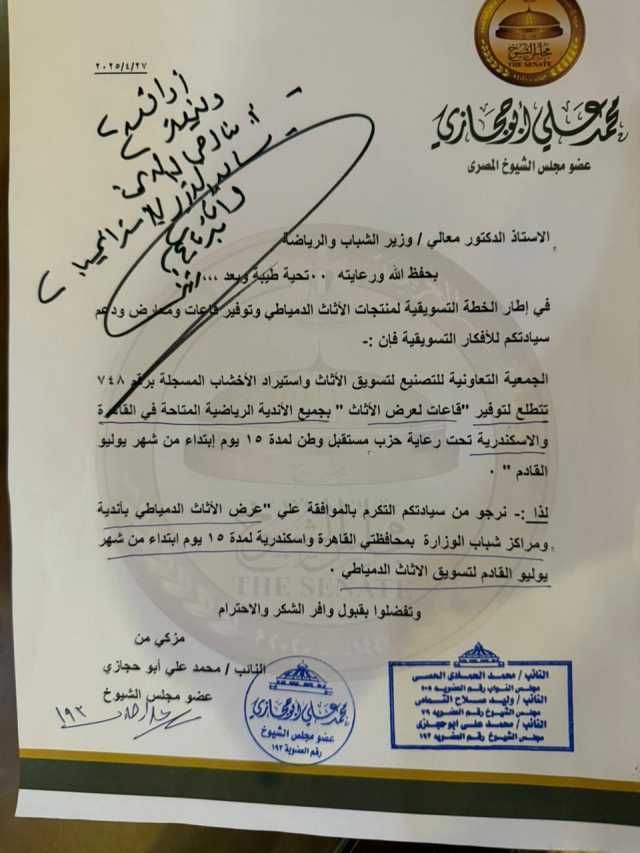 مجلس الشيوخ
THE SENATE
٢٠٢٥/٤/٢٧
محمد علي أبو حجازي
عضو مجلس الشيوخ المصرى
الاستاذ الدكتور معالي / وزير الشباب والرياضة
بحفظ الله ورعايته ٠٠تحية طيبة وبعد ,,,
في إطار الخطة التسويقية لمنتجات الأثاث الدمياطي وتوفير قاعات ومعارض ودعم
سيادتكم للأفكار التسويقية فإن :-
الجمعية التعاونية للتصنيع لتسويق الأثاث واستيراد الأخشاب المسجلة برقم ٧٤٨
تتطلع لتوفير "قاعات لعرض الأثاث " بجميع الأندية الرياضية المتاحة في القاهرة
والاسكندرية تحت رعاية حزب مستقبل وطن لمدة ١٥ يوم إبتداء من شهر يوليو
القادم " ٠
لذا :- نرجو من سيادتكم التكرم بالموافقة علي "عرض الأثاث الدمياطي بأندية
ومراكز شباب الوزارة بمحافظتي القاهرة واسكندرية لمدة ١٥ يوم ابتداء من شهر
يوليو القادم لتسويق الاثاث الدمياطي ٠
THE SENATE
وتفضلوا بقبول وافر الشكر والاحترام
مزكي من
النائب / محمد علي أبو حجازي
عضو مجلس الشيوخ
١٩٢
محمد علي أبو حجازي
عضو مجلس الشيوخ
رقم العضوية ١٩٢
النائب / محمد الحمادى الحسى
مجلس النواب رقم العضويه ٢٠٥
النائب / وليد صلاح التمامى
مجلس الشيوخ رقم العضويه ٢٩
النائب / محمد على ابوحجازى
مجلس الشيوخ رقم العضويه ١٩٢